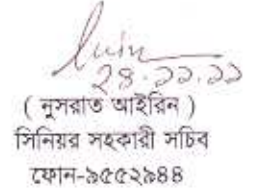 ২৪.১১.১১
( নুসরাত আইরিন )
সিনিয়র সহকারী সচিব
ফোন-৯৫৫২৯৪৪